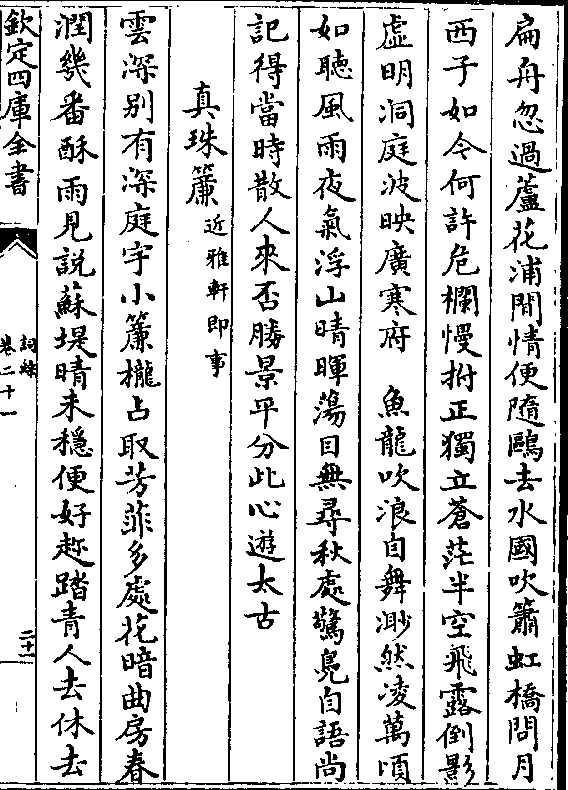 扁舟忽過蘆花浦閒情便隨鷗去水國吹簫虹橋問月
西子如今何許危欄慢拊正獨立蒼茫半空飛露倒影
虛明洞庭波映廣寒府　魚龍吹浪自舞渺然凌萬頃
如聽風雨夜氣浮山晴暉蕩目無尋秋處驚鳧自語尚
記得當時散人來否勝景平分此心遊太古
真珠簾近雅軒即事
雲深別有深庭宇小簾櫳占取芳菲多處花暗曲房春
潤幾番酥雨見說蘇堤晴未穩便好趂踏青人去休去
欽定四庫全書
詞綜
卷二十一
二十二